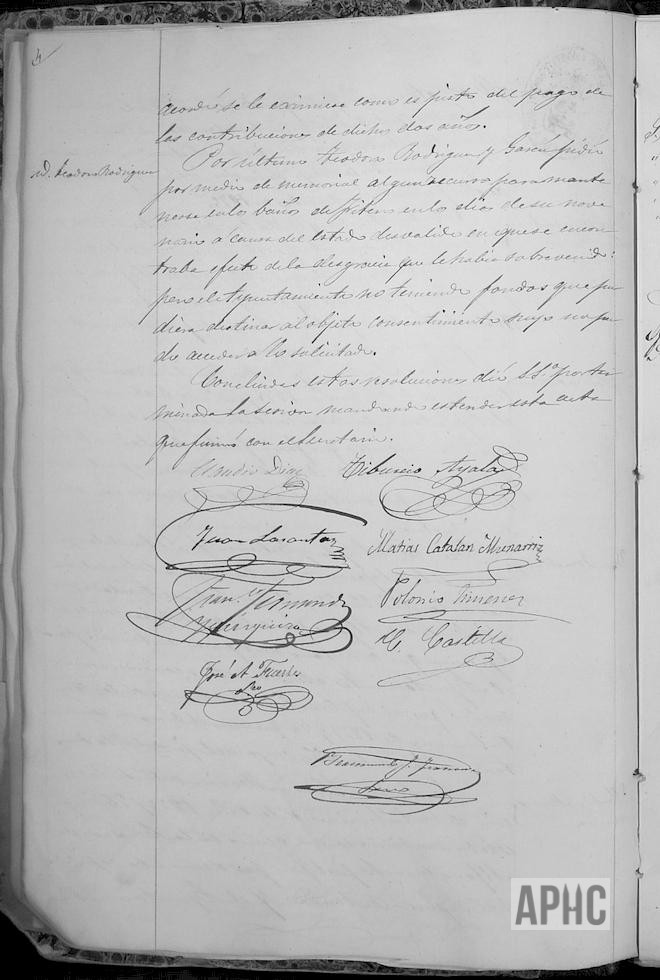 acordó se le eximiese como es justo del pago de
las contribuciones de dichos dos años.
id. Teodora Rodriguez
Por último Teodora Rodriguez y García pidió
por medio de memorial algun recurso para mante
nerse en los baños de Fitero en los dias de su nove
nario á causa del estado desvalido en que se encon
traba efecto de la desgracia que le habia sobrevenido:
pero el Ayuntamiento no teniendo fondos que pu
diera destinar al objeto consentimiento suyo no pu
do acceder a lo solicitado.
Concluidas estas resoluciones dió S.Sª. por ter
minada la sesion mandando estender esta acta
que firmó con el Secretario.
Claudio Diaz
Tiburcio Ayala
Juan Lasanta
Matias Catalan Munarriz
Fran.º Fernandez
Polonio Jimenez
C. Castilla
José A. Fuertes
APHC